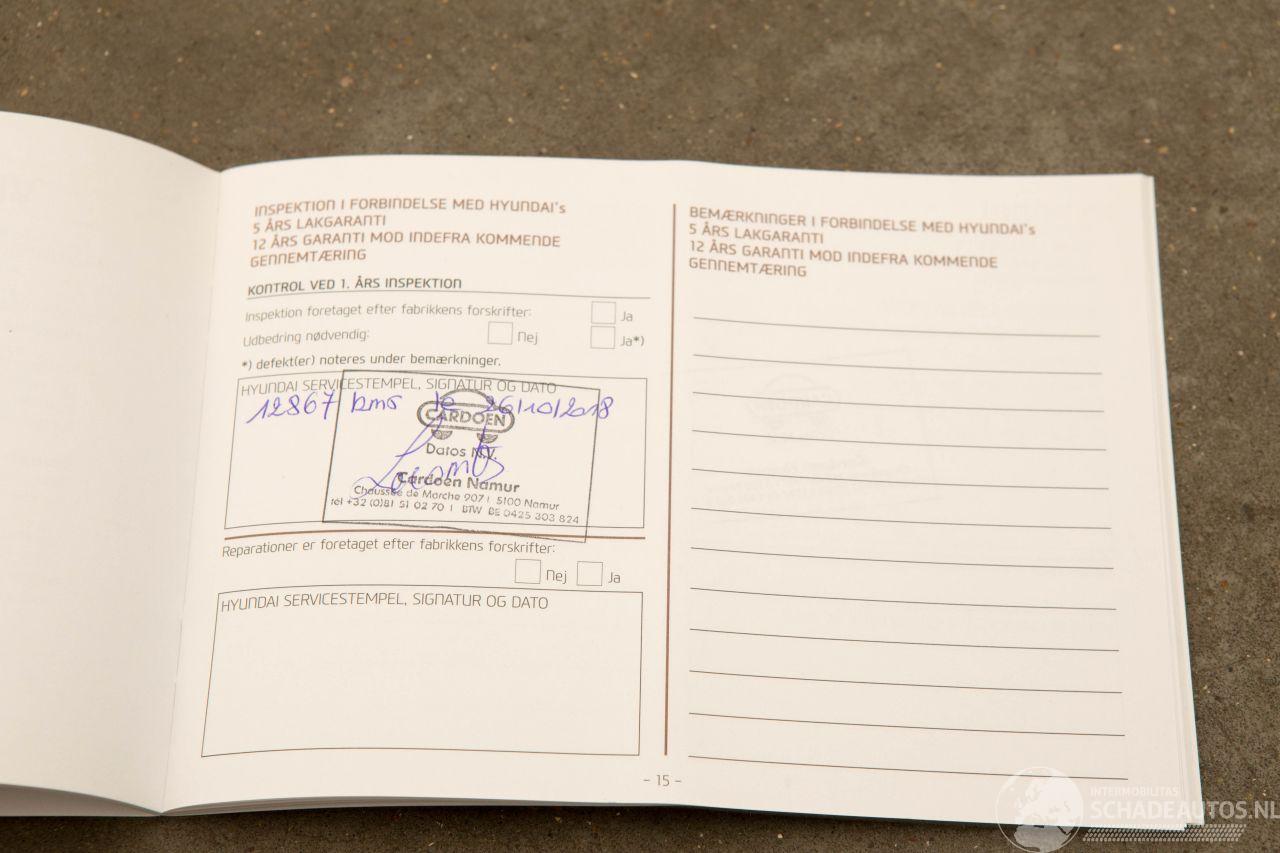 INSPEKTION I FORBINDELSE MED HYUNDAI's
5 ÅRS LAKGARANTI
12 ÅRS GARANTI MOD INDEFRA KOMMENDE
GENNEMTÆRING
KONTROL VED 1. ÅRS INSPEKTION
Inspektion foretaget efter fabrikkens forskrifter: Ja
Udbedring nødvendig: Nej Ja*)
*) defekt(er) noteres under bemærkninger.
HYUNDAI SERVICESTEMPEL, SIGNATUR OG DATO
12867 kms le 26/10/2018
CARDOEN
Datos N.V.
Cardoen Namur
Chaussée de Marche 907 I 5100 Namur
tél +32 (0)81 51 02 70 I BTW BE 0425 303 824
Reparationer er foretaget efter fabrikkens forskrifter:
Nej Ja
HYUNDAI SERVICESTEMPEL, SIGNATUR OG DATO
BEMÆRKNINGER I FORBINDELSE MED HYUNDAI's
5 ÅRS LAKGARANTI
12 ÅRS GARANTI MOD INDEFRA KOMMENDE
GENNEMTÆRING
- 15 -
INTERMOBILITAS
SCHADEAUTOS.NL